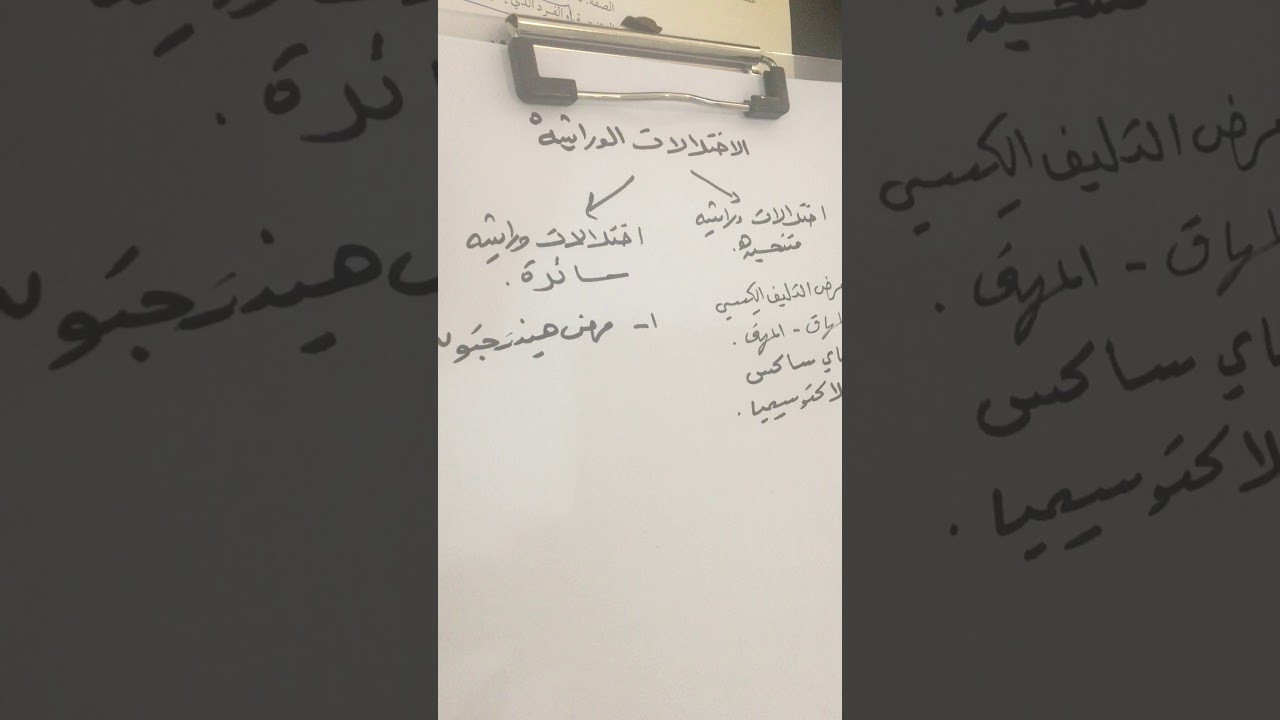 الصفة
الاختلالات الوراثية
اختلالات وراثية
متنحية.
مرض التليف الكيسي
المهاق - المهق.
تاي ساكس
جلاكتوسيميا.
اختلالات وراثية
سائدة.
١- مرض هينترجتون